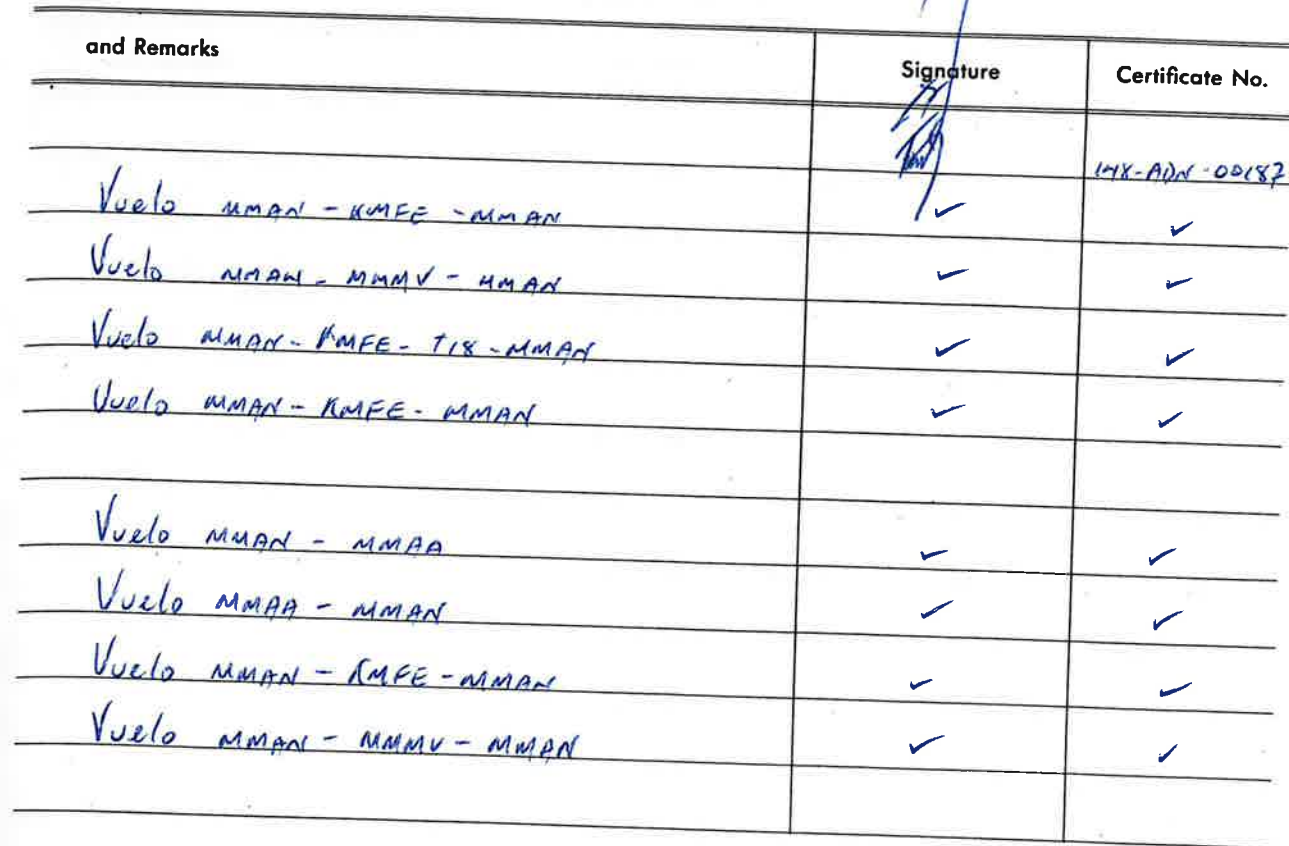 and Remarks Signature Certificate No.
148-ADN-00187
Vuelo MMAN - KMFE - MMAN ✓ ✓
Vuelo MMAN - MMMV - MMAN ✓ ✓
Vuelo MMAN - KMFE - T18 - MMAN ✓ ✓
Vuelo MMAN - KMFE - MMAN ✓ ✓
Vuelo MMAN - MMAA ✓ ✓
Vuelo MMAA - MMAN ✓ ✓
Vuelo MMAN - KMFE - MMAN ✓ ✓
Vuelo MMAN - MMMV - MMAN ✓ ✓